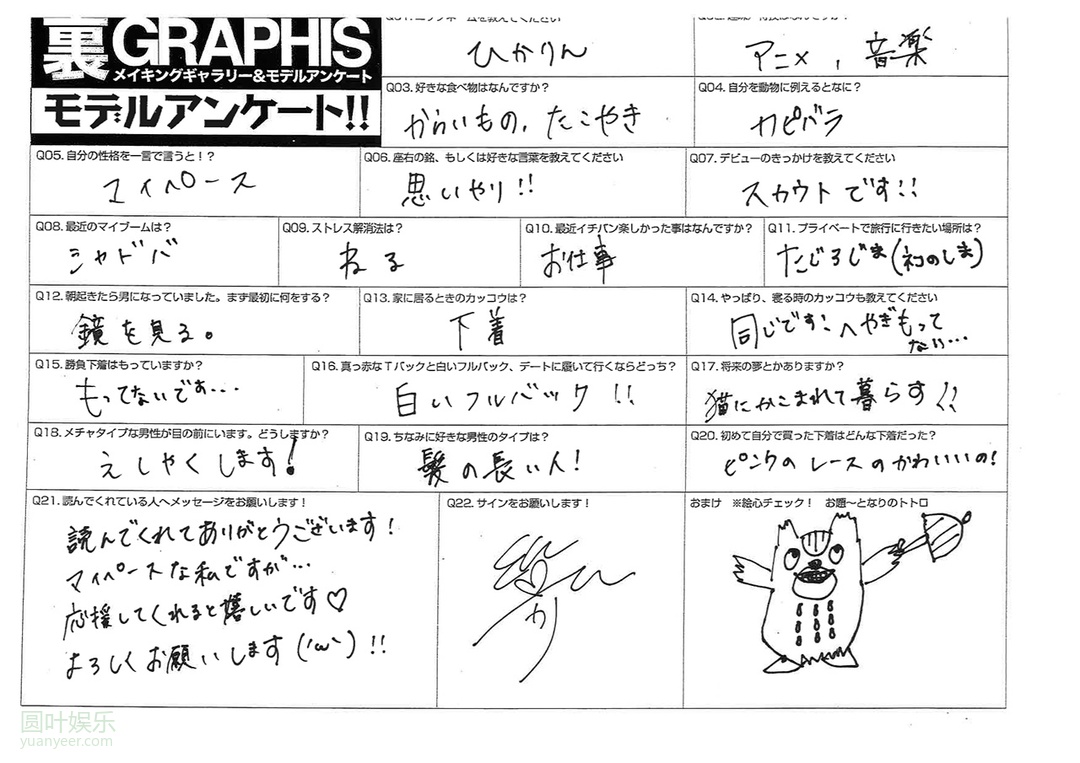 裏GRAPHIS
メイキングギャラリー&モデルアンケート
モデルアンケート!!
ひかりん
アニメ, 音楽
Q03. 好きな食べ物はなんですか?
からいもの, たこやき
Q04. 自分を動物に例えるとなに?
カピバラ
Q05. 自分の性格を一言で言うと!?
マイペース
Q06. 座右の銘、もしくは好きな言葉を教えてください
思いやり!!
Q07. デビューのきっかけを教えてください
スカウトです!!
Q08. 最近のマイブームは?
シャドバ
Q09. ストレス解消法は?
ねる
Q10. 最近イチバン楽しかった事はなんですか?
お仕事
Q11. プライベートで旅行に行きたい場所は?
たじろじま(ネコのしま)
Q12. 朝起きたら男になっていました。まず最初に何をする?
鏡を見る。
Q13. 家に居るときのカッコウは?
下着
Q14. やっぱり、寝る時のカッコウも教えてください
同じです! へやぎもって
ない…
Q15. 勝負下着はもっていますか?
もってないです…
Q16. 真っ赤なTバックと白いフルバック、デートに履いて行くならどっち?
白いフルバック!!
Q17. 将来の夢とかありますか?
猫にかこまれて暮らす!!
Q18. メチャタイプな男性が目の前にいます。どうしますか?
えしゃくします!
Q19. ちなみに好きな男性のタイプは?
髪の長い人!
Q20. 初めて自分で買った下着はどんな下着だった?
ピンクのレースのかわいいの!
Q21. 読んでくれている人へメッセージをお願いします!
読んでくれてありがとうございます!
マイペースな私ですが…
応援してくれると嬉しいです♡
よろしくお願いします('ω')!!
Q22. サインをお願いします!
おまけ ※絵心チェック! お題~となりのトトロ
圆叶娱乐
yuanyeer.com